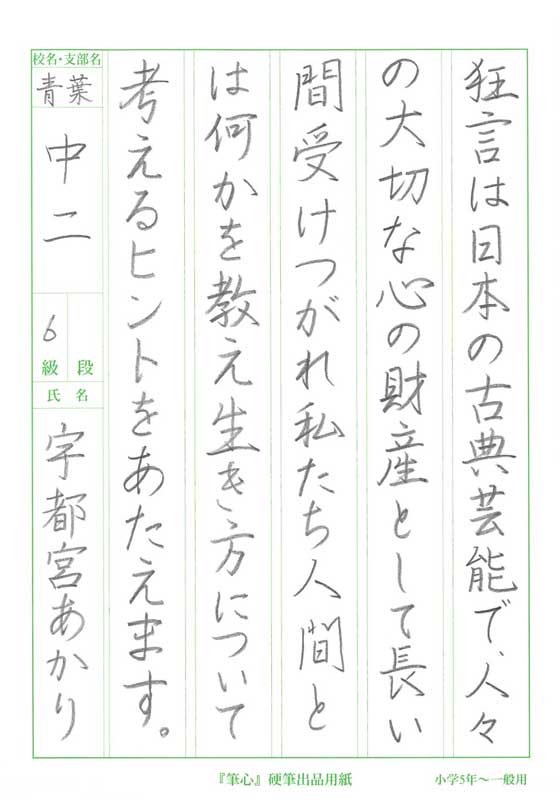 狂言は日本の古典芸能で、人々
の大切な心の財産として長い
間受けつがれ私たち人間と
は何かを教え生き方について
考えるヒントをあたえます。
校名・支部名
青葉
中二
6
級 段
氏 名
宇都宮あかり
『筆心』硬筆出品用紙
小学5年～一般用